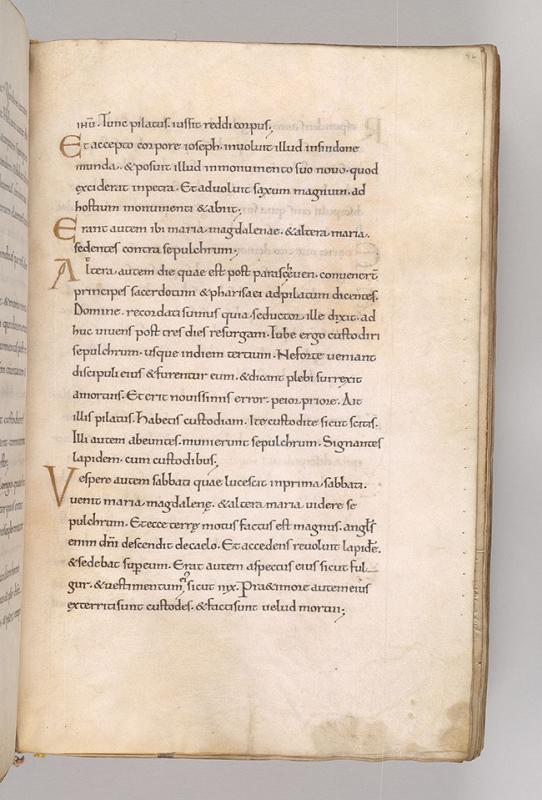 ihū. Tunc pilatus. iussit reddi corpus;
Et accepto corpore ioseph. inuoluit illud insindone
munda. &posuit illud inmonumento suo nouo. quod
exciderat inpetra. Et aduoluit saxum magnum. ad
hostium monumenti &abiit;
Erant autem ibi maria magdalenae. &altera maria.
sedentes contra sepulchrum;
Altera. autem die quae est post parasceuen. conuener̄
principes sacerdotum &pharisaei adpilatum dicentes.
Domine. recordati sumus quia seductor ille dixit. ad
huc uiuens post tres dies resurgam. Iube ergo custodiri
sepulchrum. usque indiem tertium. Neforte ueniant
discipuli eius &furentur eum. &dicant plebi surrexit
amortuis. Et erit nouissimus error. peior priore. Ait
illis pilatus. Habetis custodiam. Ite custodite sicut scitis.
Illi autem abeuntes. munierunt sepulchrum. Signantes
lapidem. cum custodibus;
Vespere autem sabbati quae lucescit inprima. sabbati.
uenit maria magdalenę. &altera maria uidere se
pulchrum. Et ecce terrę motus factus est magnus. angls
enim dn̄i descendit decaelo. Et accedens reuoluit lapidē.
&sedebat super eum. Erat autem aspectus eius sicut ful
gur. &uestimentum sicut nix. Prae timore autem eius
exterriti sunt custodes. &facti sunt uelud mortui;